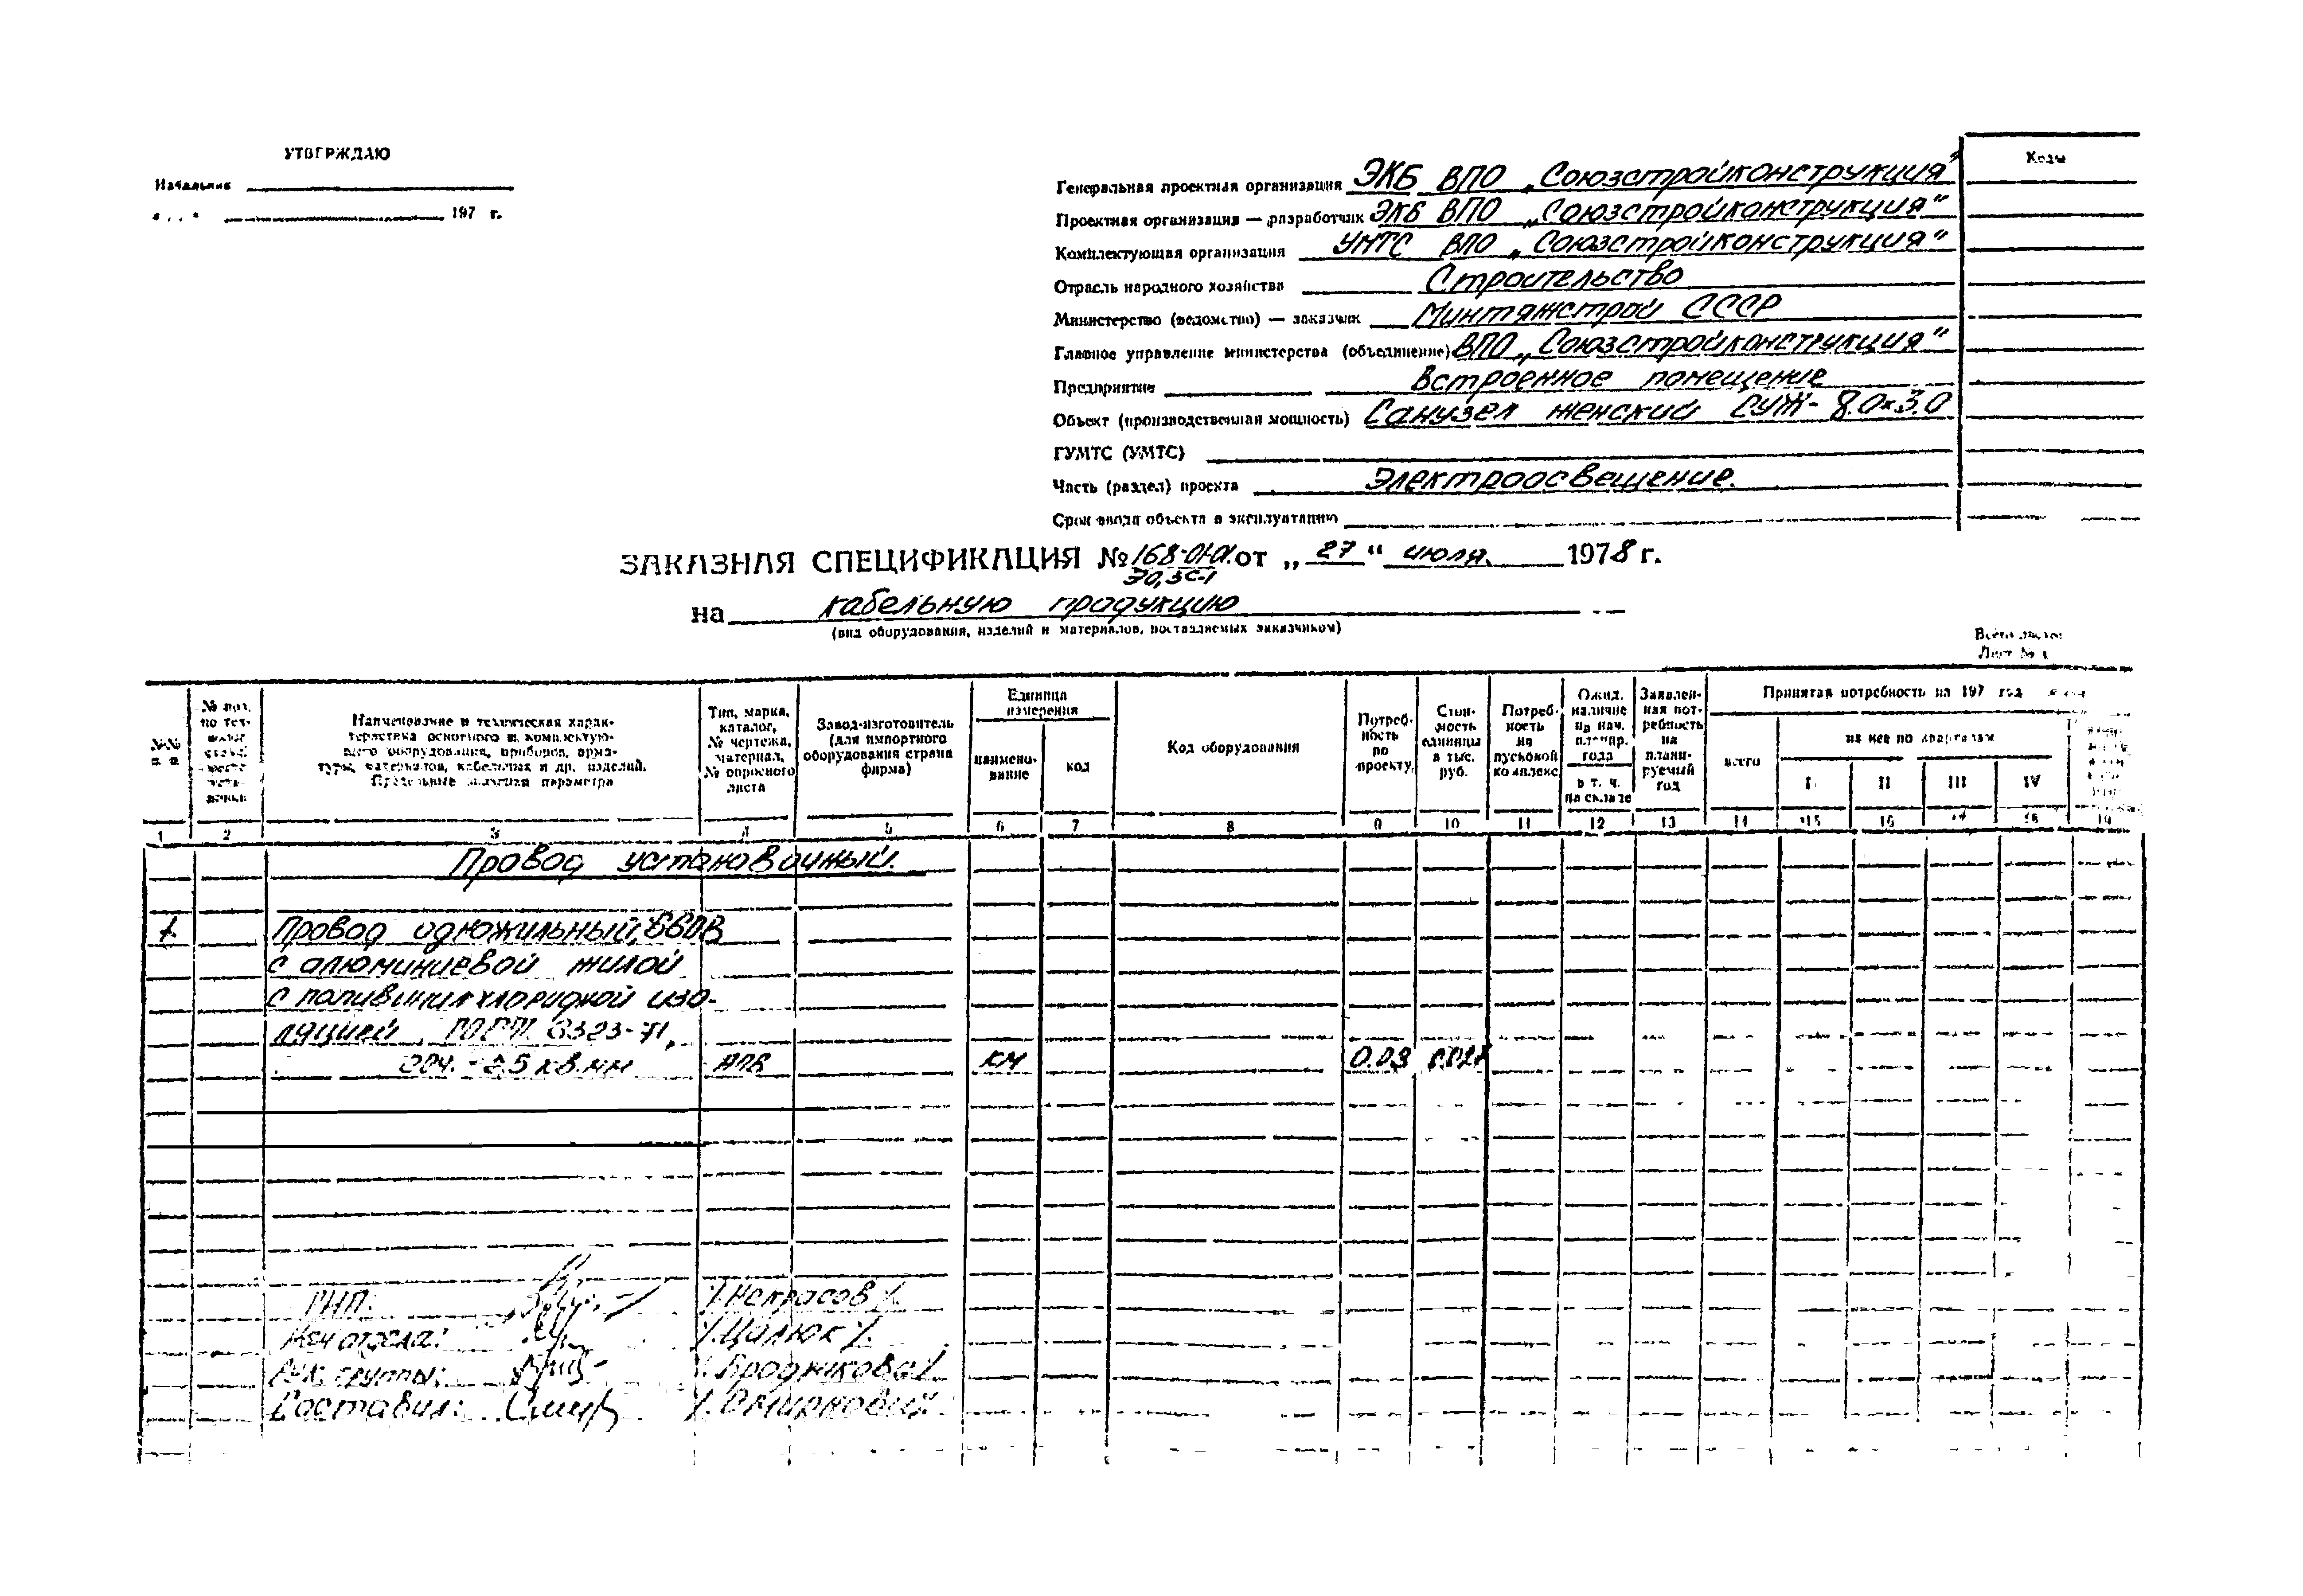 УТВЕРЖДАЮ
Начальник
197 г.
Коды
Генеральная проектная организация ЭКБ ВПО „Союзстройконструкция"
Проектная организация — разработчик ЭКБ ВПО „Союзстройконструкция"
Комплектующая организация УМТС ВПО „Союзстройконструкция"
Отрасль народного хозяйства Строительство
Министерство (ведомство) — заказчик Минтяжстрой СССР
Главное управление министерства (объединение) ВПО „Союзстройконструкция"
Предприятие Встроенное помещение
Объект (производственная мощность) Санузел женский СУЖ-8.0×3.0
ГУМТС (УМТС)
Часть (раздел) проекта Электроосвещение.
Срок ввода объекта в эксплуатацию
ЗАКАЗНАЯ СПЕЦИФИКАЦИЯ № от „27" июля. 1978 г.
ЭО,ЗС-1
на кабельную продукцию
(вид оборудования, изделий и материалов, поставляемых заказчиком)
Всего листов
Лист № 1
№№ п. п.
№ поз. по тех-
Наименование и техническая харак-
теристика основного и комплектую-
щего оборудования, приборов, арма-
туры, материалов, кабельных и др. изделий.
Предельные значения параметра
Тип, марка,
каталог,
№ чертежа,
материал,
№ опросного
листа
Завод-изготовитель
(для импортного
оборудования страна
фирма)
Единица
измерения
наимено-
вание
код
Код оборудования
Потреб-
ность
по
проекту,
Стои-
мость
единицы
в тыс.
руб.
Потреб-
ность
на
пусковой
комплекс
Ожид.
наличие
на нач.
планир.
года
в т. ч.
на складе
Заявлен-
ная пот-
ребность
на
плани-
руемый
год
Принятая потребность на 197 год
всего
из нее по кварталам
I II III IV
1 2 3 4 5 6 7 8 9 10 11 12 13 14 15 16 17 18 19
Провод установочный.
1. Провод одножильный, 660В
с алюминиевой жилой
с поливинилхлоридной изо-
ляцией ГОСТ 6323-71,
сеч. -2.5 кв.мм АПВ км 0.03
ГИП: /Некрасов/.
Нач отдела: /Цалюк/.
Рук. группы: /Бродникова/.
Составил: /Смирновый